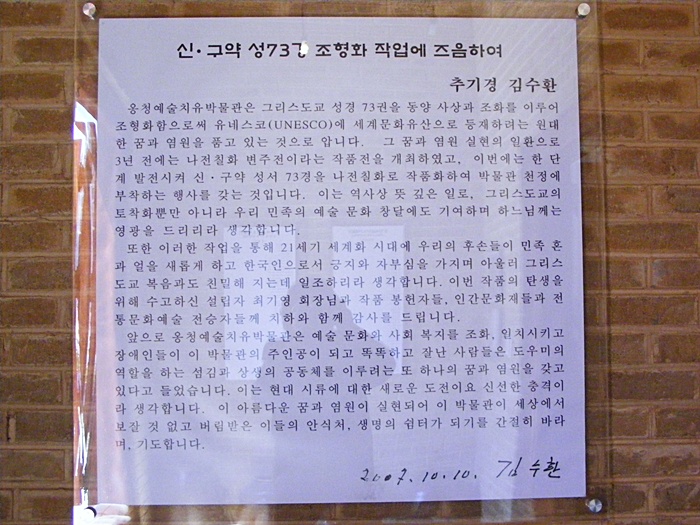 신·구약 성73경 조형화 작업에 즈음하여
추기경 김수환
웅청예술치유박물관은 그리스도교 성경 73권을 동양 사상과 조화를 이루어
조형화함으로써 유네스코(UNESCO)에 세계문화유산으로 등재하려는 원대
한 꿈과 염원을 품고 있는 것으로 압니다. 그 꿈과 염원 실현의 일환으로
3년 전에는 나전칠화 변주전이라는 작품전을 개최하였고, 이번에는 한 단
계 발전시켜 신·구약 성서 73경을 나전칠화로 작품화하여 박물관 천정에
부착하는 행사를 갖는 것입니다. 이는 역사상 뜻 깊은 일로, 그리스도교의
토착화뿐만 아니라 우리 민족의 예술 문화 창달에도 기여하며 하느님께는
영광을 드리리라 생각합니다.
또한 이러한 작업을 통해 21세기 세계화 시대에 우리의 후손들이 민족 혼
과 얼을 새롭게 하고 한국인으로서 긍지와 자부심을 가지며 아울러 그리스
도교 복음과도 친밀해 지는데 일조하리라 생각합니다. 이번 작품의 탄생을
위해 수고하신 설립자 최기영 회장님과 작품 봉헌자들, 인간문화재들과 전
통문화예술 전승자들께 치하와 함께 감사를 드립니다.
앞으로 웅청예술치유박물관은 예술 문화와 사회 복지를 조화, 일치시키고
장애인들이 이 박물관의 주인공이 되고 똑똑하고 잘난 사람들은 도우미의
역할을 하는 섬김과 상생의 공동체를 이루려는 또 하나의 꿈과 염원을 갖고
있다고 들었습니다. 이는 현대 시류에 대한 새로운 도전이요 신선한 충격이
라 생각합니다. 이 아름다운 꿈과 염원이 실현되어 이 박물관이 세상에서
보잘 것 없고 버림받은 이들의 안식처, 생명의 쉼터가 되기를 간절히 바라
며, 기도합니다.
2007. 10. 10. 김수환